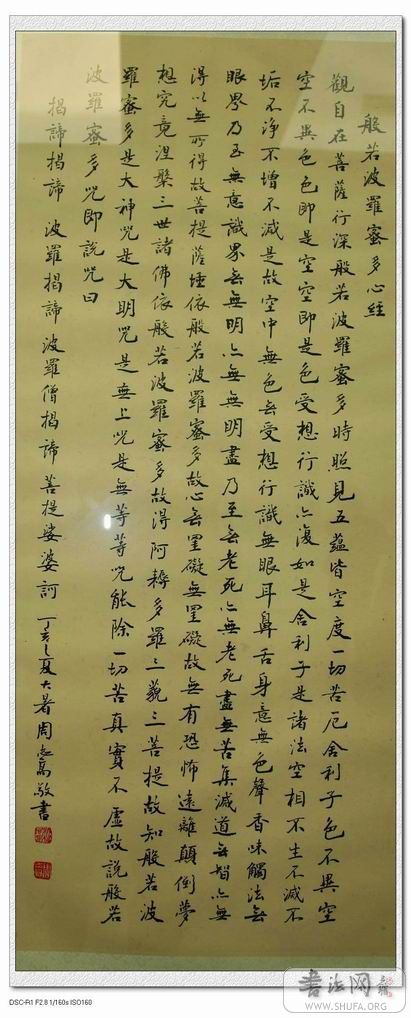 般若波羅蜜多心經
觀自在菩薩行深般若波羅蜜多時照見五蘊皆空度一切苦厄舍利子色不異空
空不異色色即是空空即是色受想行識亦復如是舍利子是諸法空相不生不滅不
垢不淨不增不減是故空中無色無受想行識無眼耳鼻舌身意無色聲香味觸法無
眼界乃至無意識界無無明亦無無明盡乃至無老死亦無老死盡無苦集滅道無智亦無
得以無所得故菩提薩埵依般若波羅蜜多故心無罣礙無罣礙故無有恐怖遠離顛倒夢
想究竟涅槃三世諸佛依般若波羅蜜多故得阿耨多羅三藐三菩提故知般若波
羅蜜多是大神咒是大明咒是無上咒是無等等咒能除一切苦真實不虛故說般若
波羅蜜多咒即說咒曰
揭諦揭諦 波羅揭諦 波羅僧揭諦 菩提娑婆訶 丁亥之夏大暑周志高敬書
DSC-R1 F2.8 1/160s ISO160
书法网
WWW.SHUFA.ORG